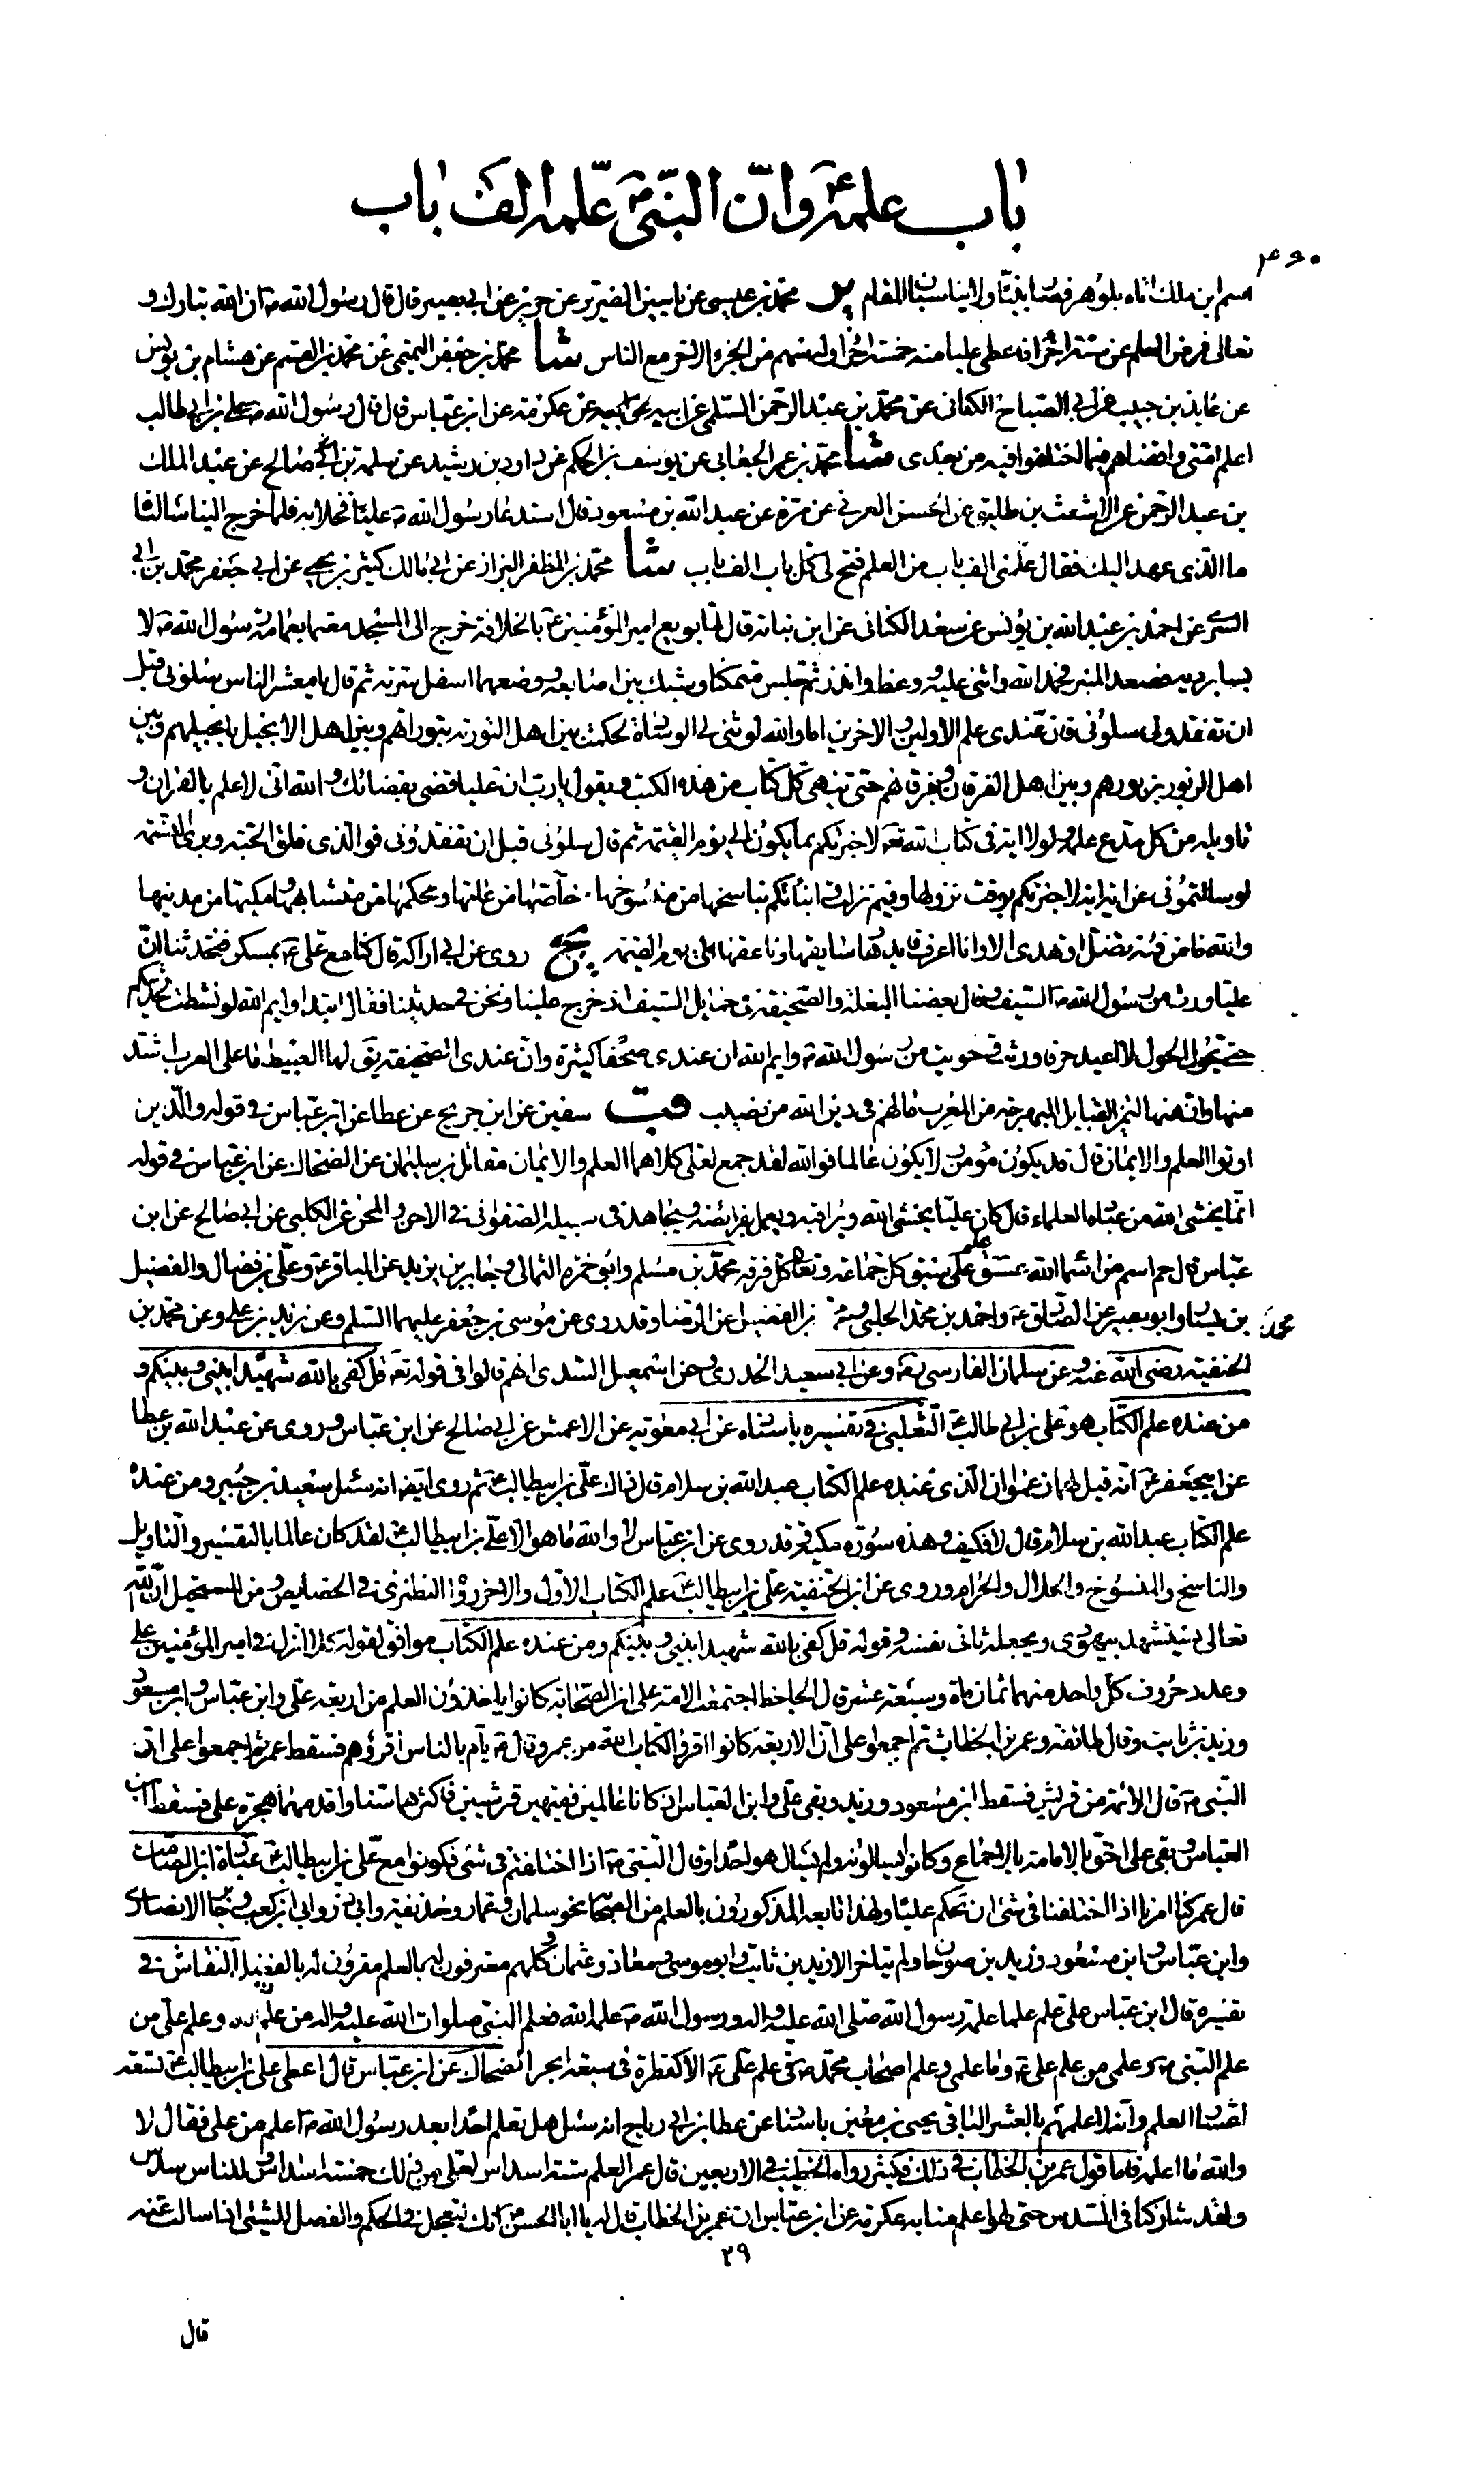 باب علمه ع وانّ النّبىّ ص علّمه الف باب
۴۶۰
محمّد بن عيسى عن ياسين الضرير عن حريز عن ابى بصير قال قال رسول الله ص ان الله تبارك و
تعالى فرض العلم على ستة اجزاء فاعطى عليا منه خمسة اجزاء وله سهم من الجزء الاخر مع الناس شا محمّد بن جعفر التميمى عن محمّد بن القسم عن هشام بن يونس
عن عايذ بن حبيب عن ابى الصباح الكنانى عن محمّد بن عبد الرحمن السلمى عن ابيه عن عكرمة عن ابن عبّاس قال قال رسول الله ص على بن ابى طالب
اعلم امّتى واقضاهم فيما اختلفوا فيه من بعدى شا محمّد بن عمر الجعابى عن يوسف بن الحكم عن داود بن رشيد عن سلمة بن صالح عن عبد الملك
بن عبد الرحمن عن الاشعث بن طليق عن الحسن العرنى عن مرّة عن عبد الله بن مسعود قال استدعا رسول الله ص عليّا فخلا به فلما خرج الينا سالناه
ما الّذى عهد اليك فقال علّمنى الف باب من العلم فتح لى كل باب الف باب شا محمّد بن المظفر البزاز عن ابى مالك كثير بن يحيى عن ابى جعفر محمّد بن ابى
السرى عن احمد بن عبد الله بن يونس عن سعد الكنانى عن ابن نباتة قال لمّا بويع امير المؤمنين ع بالخلافة خرج الى المسجد معتما بعمامة رسول الله ص لا
بسا برديه فصعد المنبر فحمد الله واثنى عليه و وعظ وانذر ثم جلس متمكنا وشبك بين اصابعه ووضعهما اسفل سرته ثم قال يا معشر الناس سلونى قبل
ان تفقدونى سلونى فان عندى علم الاولين والاخرين اما والله لو ثنى لى الوسادة لحكمت بين اهل التورية بتوراتهم وبين اهل الانجيل بانجيلهم وبين
اهل الزبور بزبورهم وبين اهل الفرقان بفرقانهم حتى ينهى كل كتاب من هذه الكتب ويقول يا رب ان عليا قضى بقضائك والله انى لاعلم بالقران و
تاويله من كل مدع علمه ولولا اية فى كتاب الله تعه لاخبرتكم بما يكون الى يوم القيمة ثم قال سلونى قبل ان تفقدونى فو الّذى فلق الحبة وبرئ النسمة
لو سالتمونى عن اية اية لاخبرتكم بوقت نزولها وفيم نزلت وانبأتكم بناسخها من منسوخها، خاصّها من عامّها ومحكمها من متشابهها ومكيها من مدنيها
والله ما من فئة تضل او تهدى الا وانا اعرف قايدها وسايقها وناعقها الى يوم القيمة يج روى عن ابى اراكة قال كنا مع على ع بمسكن فتحدثنا انّ
عليّا ورث من رسول الله ص السيف وقال بعضنا البغلة والصحيفة فى حمايل السيف اذ خرج علينا ونحن فى حديثنا فقال ابتداء وايم الله لو نشطت لحدثتكم
حتى يحول الحول لا اعيد حرفا وايم الله ان عندى صحفا كثيرة وانّ عندى الصحيفة يق لها العبيطة ما على العرب اشد
منها وان فيها لتميز القبايل المبهرجة من العرب ما لهم فى دين الله من نصيب قب سفين عن ابن جريج عن عطا عن ابن عبّاس فى قوله والّذين
اوتوا العلم والايمان قال قد يكون مؤمن لا يكون عالما فو الله لقد جمع لعلى كلاهما العلم والايمان مقاتل بن سليمان عن الضحاك عن ابن عبّاس فى قوله
انّما يخشى الله من عباده العلماء قال كان علىّ يخشى الله ويراقبه ويعمل بفرائضه ويجاهد فى سبيله الصفوانى فى الاحن والمحن عن الكلبى عن ابى صالح عن ابن
عبّاس قال حم اسم من اسماء الله عسق علم على سبق كل جماعة وتعالى كل فرقة محمّد بن مسلم وابو حمزه الثمالى وجابر بن يزيد عن الباقر ع وعلى بن فضال والفضيل
بن يسار وابو بصير عن الصادق ع واحمد بن محمّد الحلبى ومحمّد بن الفضيل عن الرضا وقد روى عن موسى بن جعفر عليهما السلم وعن زيد بن على وعن محمّد بن
محمد
الحنفية رضى الله عنه وعن سلمان الفارسى وعن ابى سعيد الخدرى وعن اسمعيل السدى انهم قالوا فى قوله تعه قل كفى بالله شهيدا بينى وبينكم و
من عنده علم الكتاب هو على بن ابى طالب ع الثعلبى فى تفسيره باسناده عن ابى معوية عن الاعمش عن ابى صالح عن ابن عبّاس وروى عن عبد الله بن عطا
عن ابيجعفر ع انّه قيل لهما زعموا ان الّذى عنده علم الكتاب عبد الله بن سلام قال ذاك علىّ بن ابيطالب ع ثم روى ايضا انه سئل سعيد بن جبير ومن عنده
علم الكتاب عبد الله بن سلام قال لا فكيف وهذه سورة مكية وقد روى عن ابن عبّاس لا والله ما هو الّا علىّ بن ابيطالب ع لقد كان عالما بالتفسير والتاويل
والناسخ والمنسوخ والحلال والحرام وروى عن ابن الحنفية علىّ بن ابيطالب ع علم الكتاب الاول والاخر رواه النطنزى فى الخصايص ومن المستحيل انّ الله
تعالى يستشهد بيهودى ويجعله ثانى نفسه وقوله قل كفى بالله شهيدا بينى وبينكم ومن عنده علم الكتاب موافق لقوله كلا انزل فى امير المؤمنين على
وعدد حروف كل واحد منهما ثمان ماة وسبعة عشر قال الجاحظ اجتمعت الامة على ان الصحابة كانوا ياخذون العلم من اربعة على وابن عبّاس وابن مسعود
وزيد بن ثابت وقال طائفة وعمر بن الخطاب ثم اجمعوا على ان الاربعة كانوا اقرؤ لكتاب الله من عمر وقال ص يؤم بالناس اقرؤهم فسقط عمر ثم اجمعوا على ان
النّبى ص قال الائمة من قريش فسقط ابن مسعود وزيد وبقى علىّ وابن العباس اذ كانا عالمين فقيهين قرشيين فاكثرهما سنا واقدمهما هجرة على فسقط ابن
العباس وبقى على احق بالامامة بالاجماع وكانوا يسالونه ولم يسال هو احدا وقال النّبى ص اذا اختلفتم فى شىء فكونوا مع علىّ بن ابيطالب ع عبادة بن الصامت
قال عمر كنا امرنا اذا اختلفنا فى شىء ان نحكم عليّا ولهذا تابعه المذكورون بالعلم من الصحابة نحو سلمان وعمار وحذيفة وابى ذر وابى بن كعب وجابر الانصارى
وابن عبّاس وابن مسعود وزيد بن صوحان ولم يتاخر الا زيد بن ثابت وابو موسى ومعاذ وعثمان وكلهم معترفون له بالعلم مقرون له بالفضل النقاش فى
تفسيره قال ابن عبّاس علىّ علم علما علمه رسول الله صلى الله عليه واله ورسول الله ص علمه الله فعلم النبى صلوات الله عليه واله من علم الله وعلم علىّ من
علم النّبى ص وعلمى من علم على ع وما علمى وعلم اصحاب محمّد ص فى علم على ع الا كقطرة فى سبعة ابحر الضحاك عن ابن عبّاس قال اعطى علىّ بن ابيطالب ع تسعة
اعشار العلم وانه لاعلمهم بالعشر الباقى يحيى بن معين باسناده عن عطا بن ابى رباح انه سئل هل تعلم احدا بعد رسول الله ص اعلم من على فقال لا
والله ما اعلمه فاما قول عمر بن الخطاب فى ذلك فكثير رواه الخطيب فى الاربعين قال عمر العلم ستة اسداس لعلى من ذلك خمسة اسداس وللناس سدس
ولقد شاركنا فى السدس حتى لهو اعلم منا به عكرمة عن ابن عبّاس ان عمر بن الخطاب قال له يا ابا الحسن انك لتعجل فى الحكم والفصل للشىء اذا سالت عنه
۲۹
قال